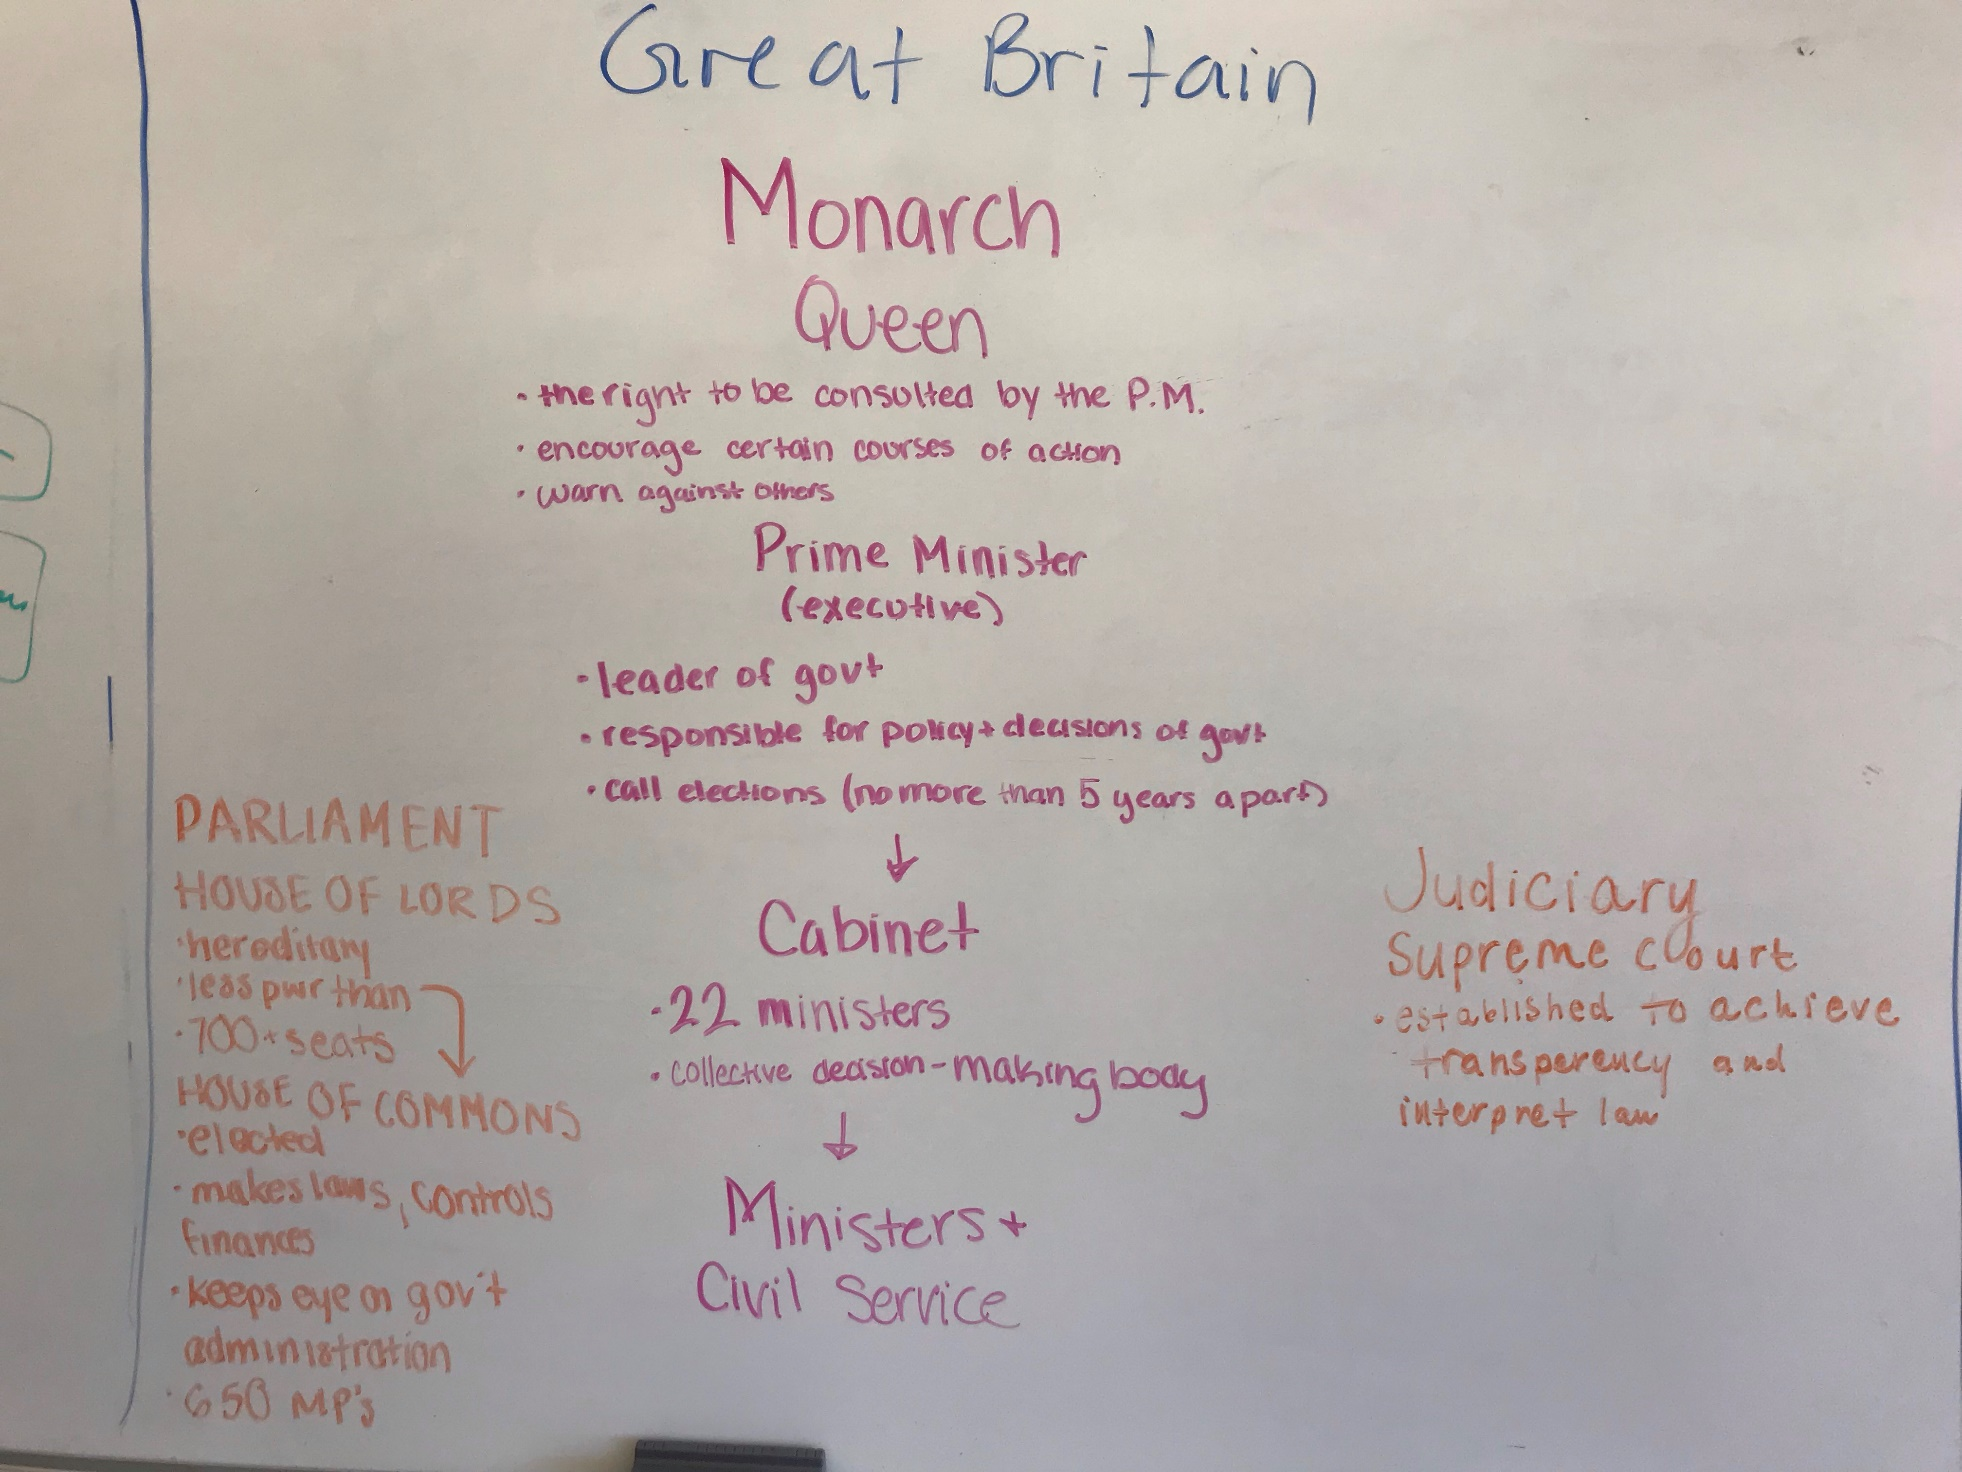 Great Britain
Monarch
Queen
• the right to be consulted by the P.M.
• encourage certain courses of action
• warn against others
Prime Minister
(executive)
• leader of govt
• responsible for policy + decisions of govt
• call elections (no more than 5 years apart)
Cabinet
• 22 ministers
• collective decision-making body
Ministers +
Civil Service
PARLIAMENT
HOUSE OF LORDS
• hereditary
• less pwr than
• 700+ seats
HOUSE OF COMMONS
• elected
• makes laws, controls
finances
• keeps eye on gov't
administration
• 650 MP's
Judiciary
Supreme Court
• established to achieve
transperency and
interpret law